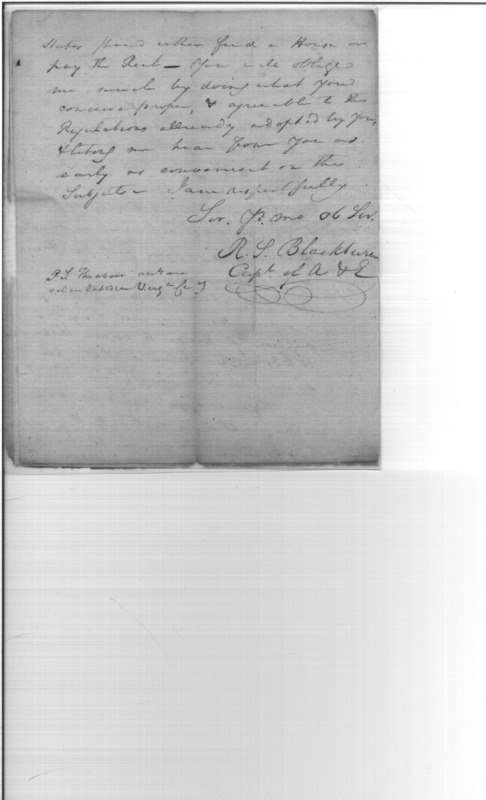 States should either find a House or
pay the Rent — You will oblige
me much by doing what you
conceive proper, & agreeable to the
Regulations already adopted by you,
& letting me hear from You as
early as convenient on the
Subject — I am respectfully
Sir, Yr. mo ob Ser.
R. S. Blackburn
Capt. of A & E
P.S. The above
calculation